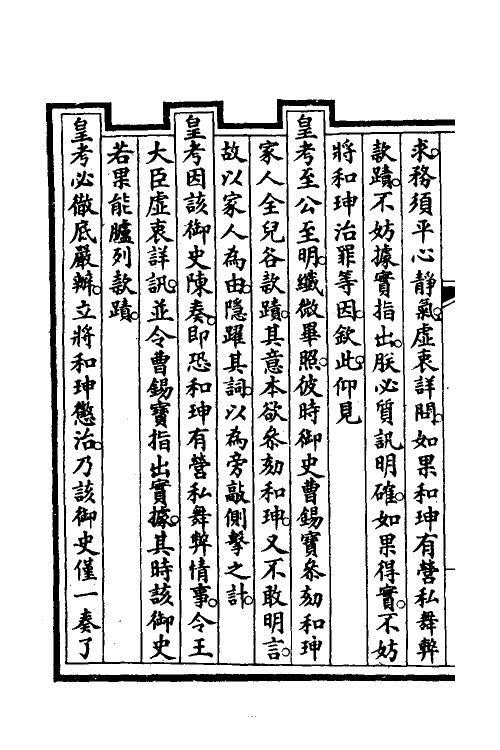 求。務須平心靜氣。虛衷詳問。如果和珅有營私舞弊
款蹟。不妨據實指出。朕必質訊明確。如果得實。不妨
將和珅治罪等因。欽此。仰見
皇考至公至明。纖微畢照。彼時御史曹錫寶叅劾和珅
家人全兒各款蹟。其意本欲叅劾和珅。又不敢明言。
故以家人為由。隱躍其詞。以為旁敲側擊之計。
皇考因該御史陳奏。即恐和珅有營私舞弊情事。令王
大臣虛衷詳訊。並令曹錫寶指出實據。其時該御史
若果能臚列款蹟。
皇考必徹底嚴辦。立將和珅懲治。乃該御史僅一奏了